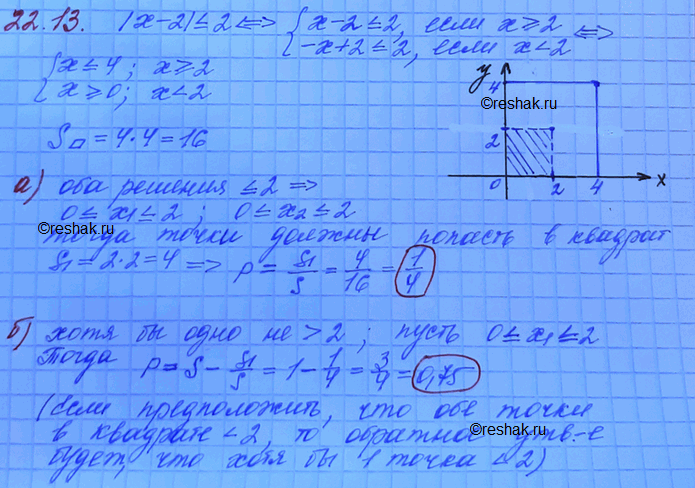 22.13. |x-2|≤2 <=> { x-2≤2, если x≥2
{ -x+2≤2, если x<2 <=>
{ x≤4; x≥2
{ x≥0; x<2
y
4
©reshak.ru
2
0 2 4 x
S□ = 4·4=16
а) оба решения ≤2 =>
0≤x₁≤2; 0≤x₂≤2
©reshak.ru
тогда точки должны попасть в квадрат
S₁=2·2=4 => P = S₁/S = 4/16 = 1/4
б) хотя бы одно не >2; пусть 0≤x₁≤2
Тогда P = S - S₁/S = 1 - 1/4 = 3/4 = 0,75
©reshak.ru
(если предположить, что обе точки
в квадрате <2, то обратное утв-е
будет, что хотя бы 1 точка <2)
©reshak.ru